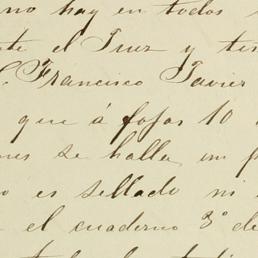 no hay en todos
te el Juez y tes
S. Francisco Javier
que á fojas 10
nes se halla un p
o es sellado ni
el cuaderno 3º de